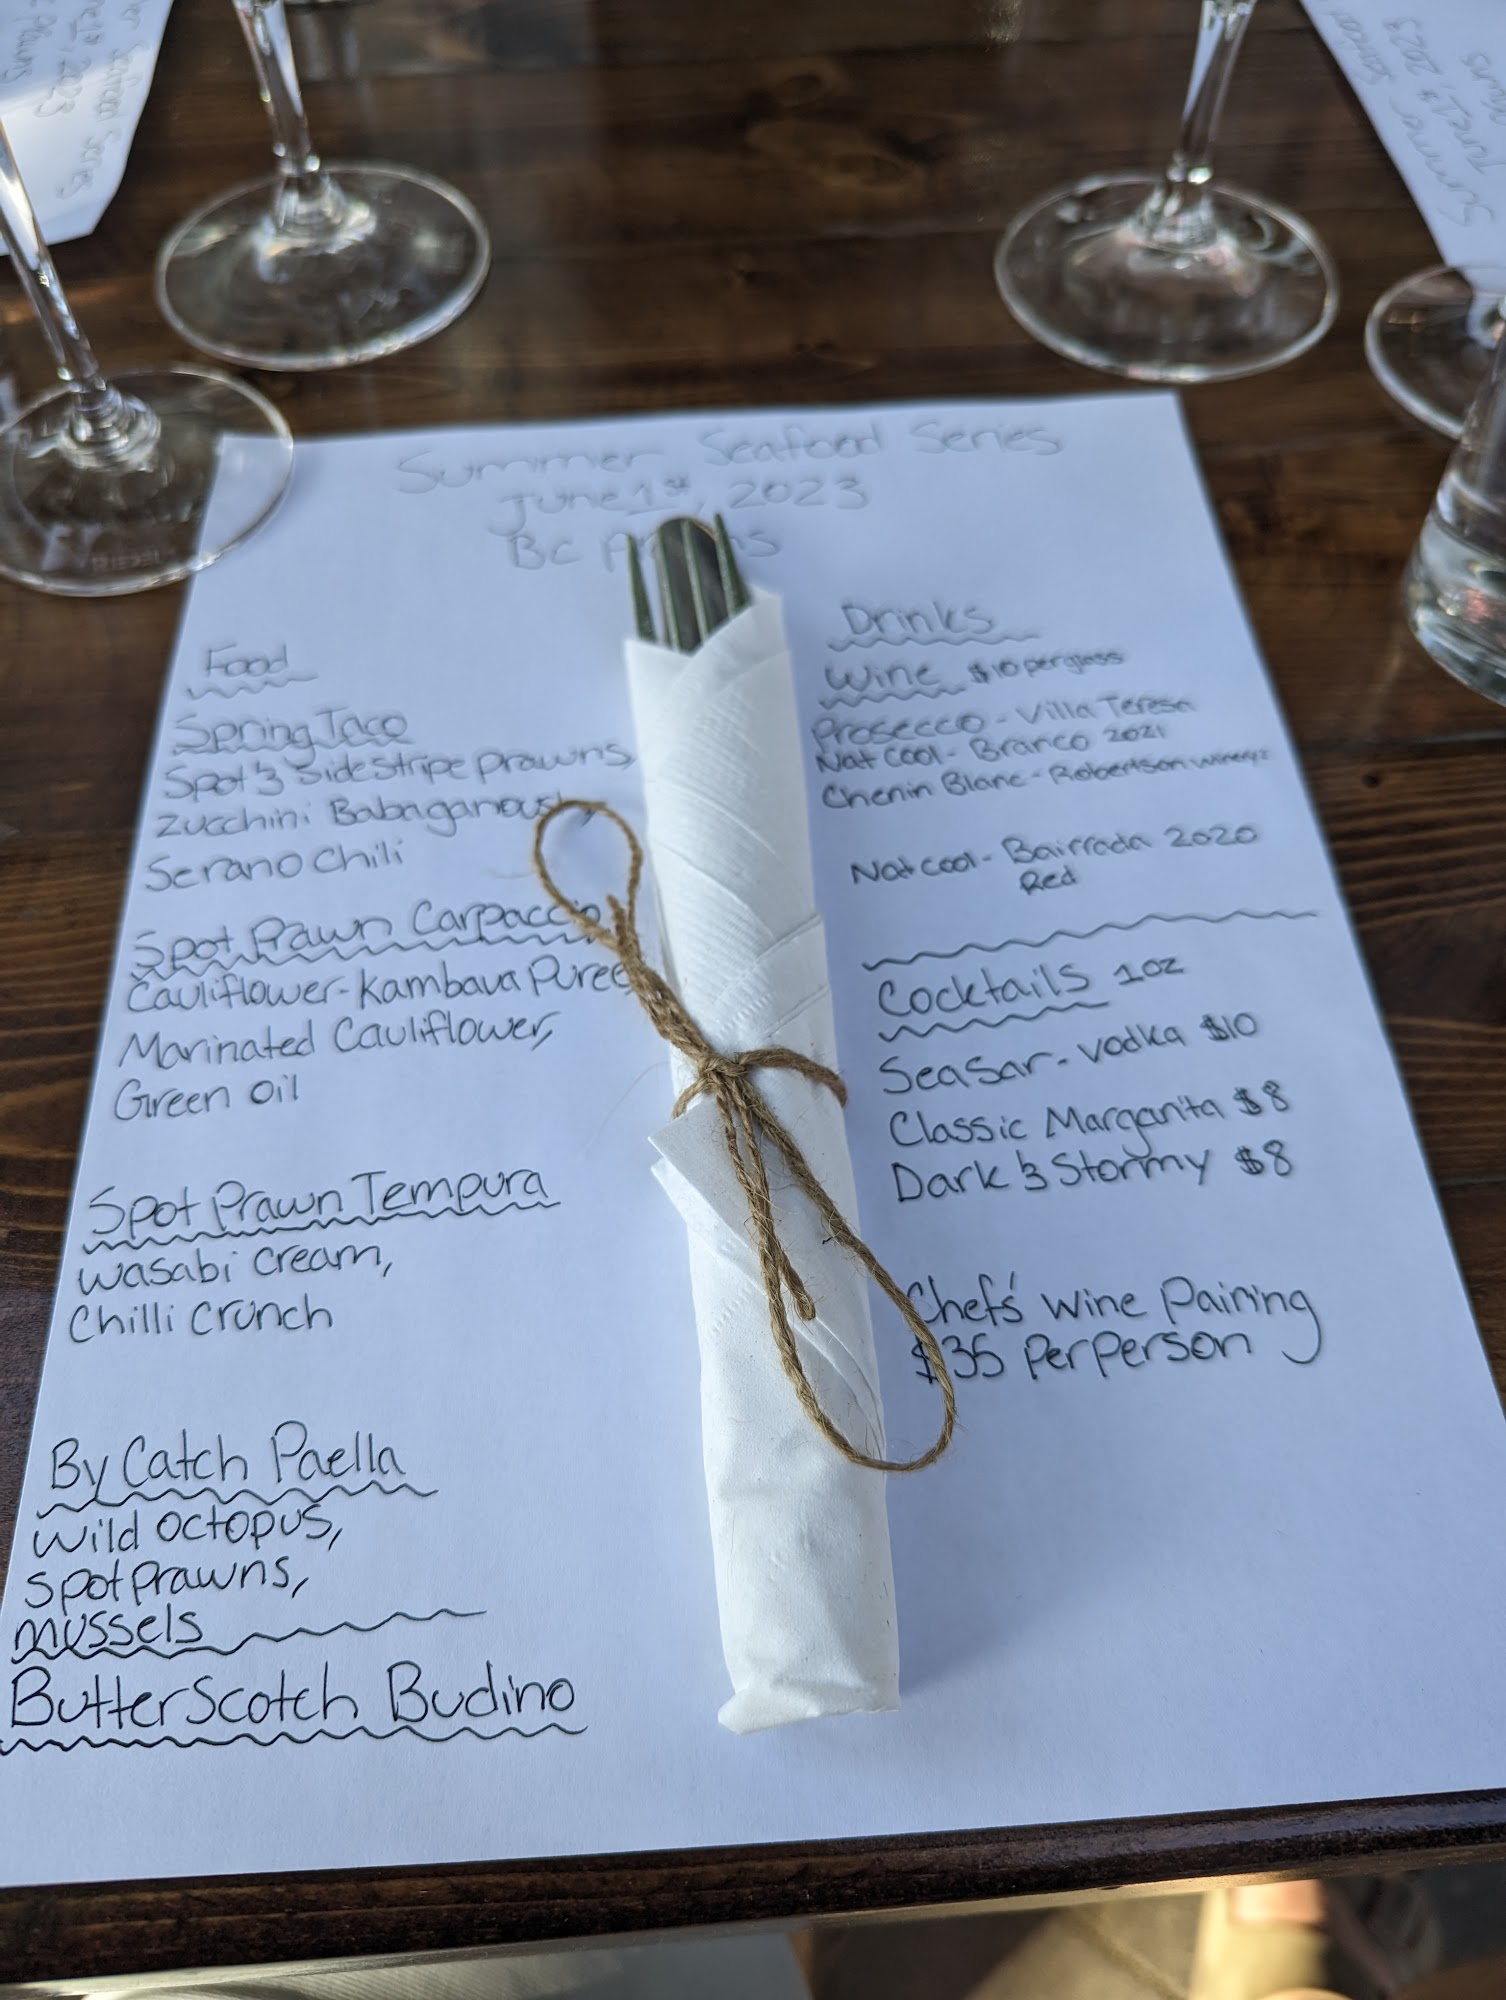 Summer Seafood Series
June 1st, 2023
BC
Food
Spring Taco
Spot & Sidestripe prawns,
Zucchini Babaganoush,
Serano chili
Spot Prawn Carpaccio
Cauliflower-Kambava Puree
Marinated Cauliflower,
Green oil
Spot Prawn Tempura
wasabi cream,
Chilli crunch
By Catch Paella
wild octopus,
spot prawns,
mussels
ButterScotch Budino
Drinks
Wine $10 per glass
Prosecco - Villa Teresa
Nat Cool - Branco 2021
Chenin Blanc - Robertson winery
Nat cool - Bairrada 2020
Red
Cocktails 1oz
Seasar - vodka $10
Classic Margarita $8
Dark & Stormy $8
Chefs' wine pairing
$35 per person
Series
2023
Summer
June 1st, 2023
RIEDEL